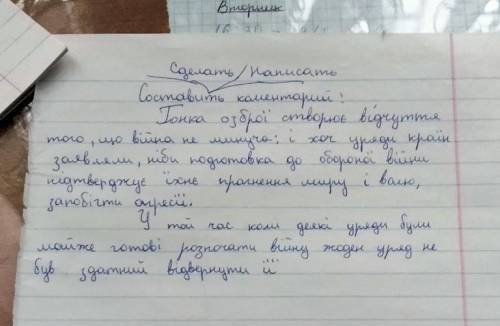 Вторник
Сделать / Написать
Составить коментарий:
Гонка озброї створює відчуття
того, що війна не минуча: і хоч уряди країн
заявляли, ніби подготовка до обороної війни
підтверджує їхнє прагнення миру і валю,
запобігти агресії.
У той час коли деякі уряди були
майже готові розпочати війну жоден уряд не
був здатний відвернути її